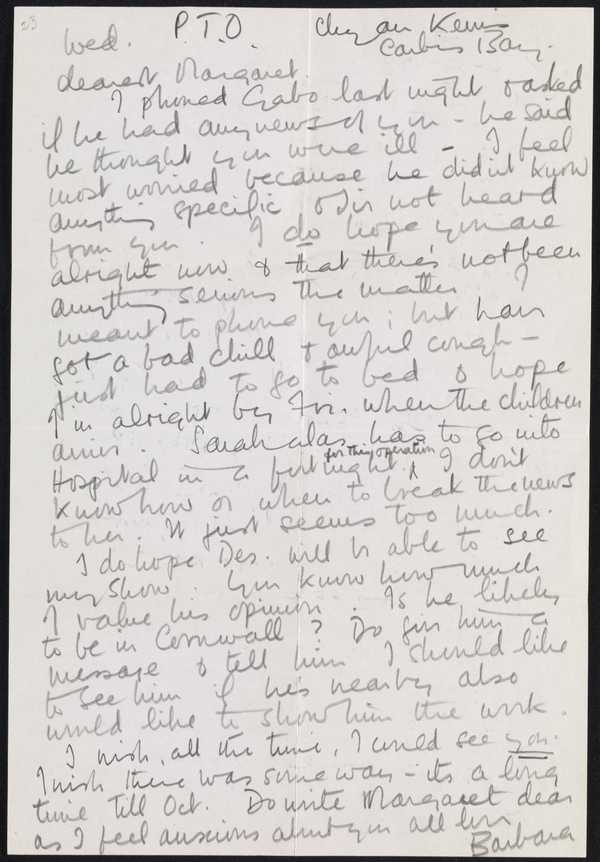 23
Wed. P.T.O. Chy an Kerris
Carbis Bay.
dearest Margaret.
I phoned Gabo last night & asked
if he had any news of you – he said
he thought you were ill – I feel
most worried because he didn't know
anything specific & I'd not heard
from you. I do hope you are
alright now & that there's not been
anything serious the matter I
meant to phone you; but have
got a bad chill & awful cough –
just had to go to bed & hope
I'm alright by Fri. when the children
arrive. Sarah alas has to go into
Hospital in a fortnight for the operation. I don't
know how or when to break the news
to her. It just seems too much.
I do hope Des. will be able to see
my show. You know how much
I value his opinion. Is he likely
to be in Cornwall? Do give him a
message & tell him I should like
to see him if he's nearby also
would like to show him the work.
I wish, all the time, I could see you.
I wish there was some way – its a long
time till Oct. Do write Margaret dear
as I feel anxious about you all love
Barbara